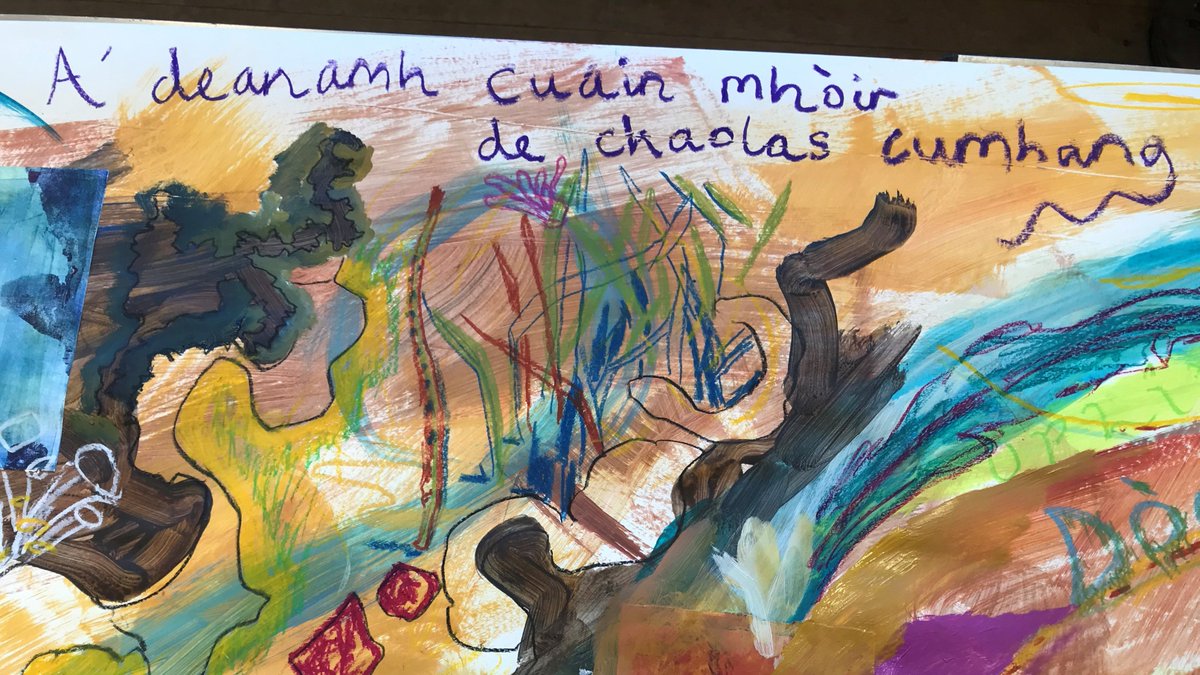 A' deanamh cuain mhòir
de chaolas cumhang